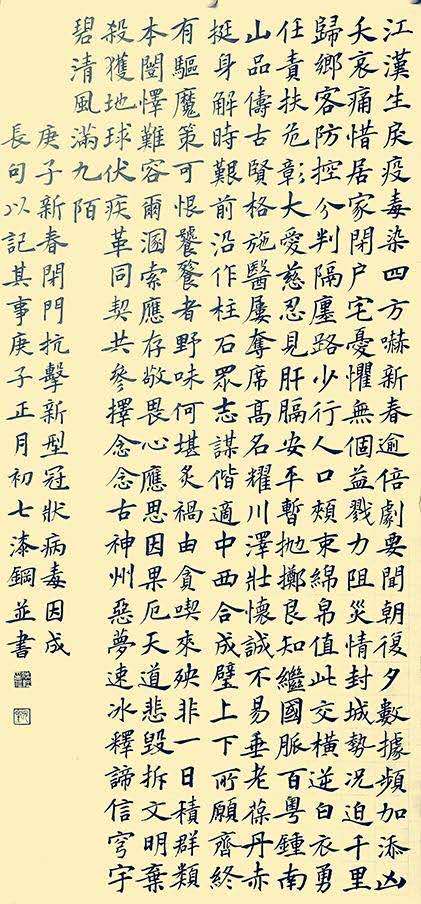 江漢生戾疫毒染四方嚇新春逾倍劇要聞朝復夕數據頻加添凶
夭哀痛惜居家閉户宅憂懼無個益戮力阻災情封城勢況迫千里
歸鄉客防控分判隔廛路少行人口頰束綿帛值此交橫逆白衣勇
任責扶危彰大愛慈忍見肝膈安平暫拋擲良知繼國脈百粵鍾南
山品儔古賢格施醫屢奪席高名耀川澤壯懷誠不易垂老葆丹赤
挺身解時艱前沿作柱石眾志謀偕適中西合成璧上下所願齊終
有驅魔策可恨饕餮者野味何堪炙禍由貪喫來殃非一日積群類
本闓懌難容爾溷索應存敬畏心應思因果厄天道悲毀拆文明棄
殺獲地球伏疾革同契共參擇念念古神州惡夢速冰釋諦信穹宇
碧清風滿九陌
庚子新春閉門抗擊新型冠狀病毒因成
長句以記其事庚子正月初七漆鋼並書